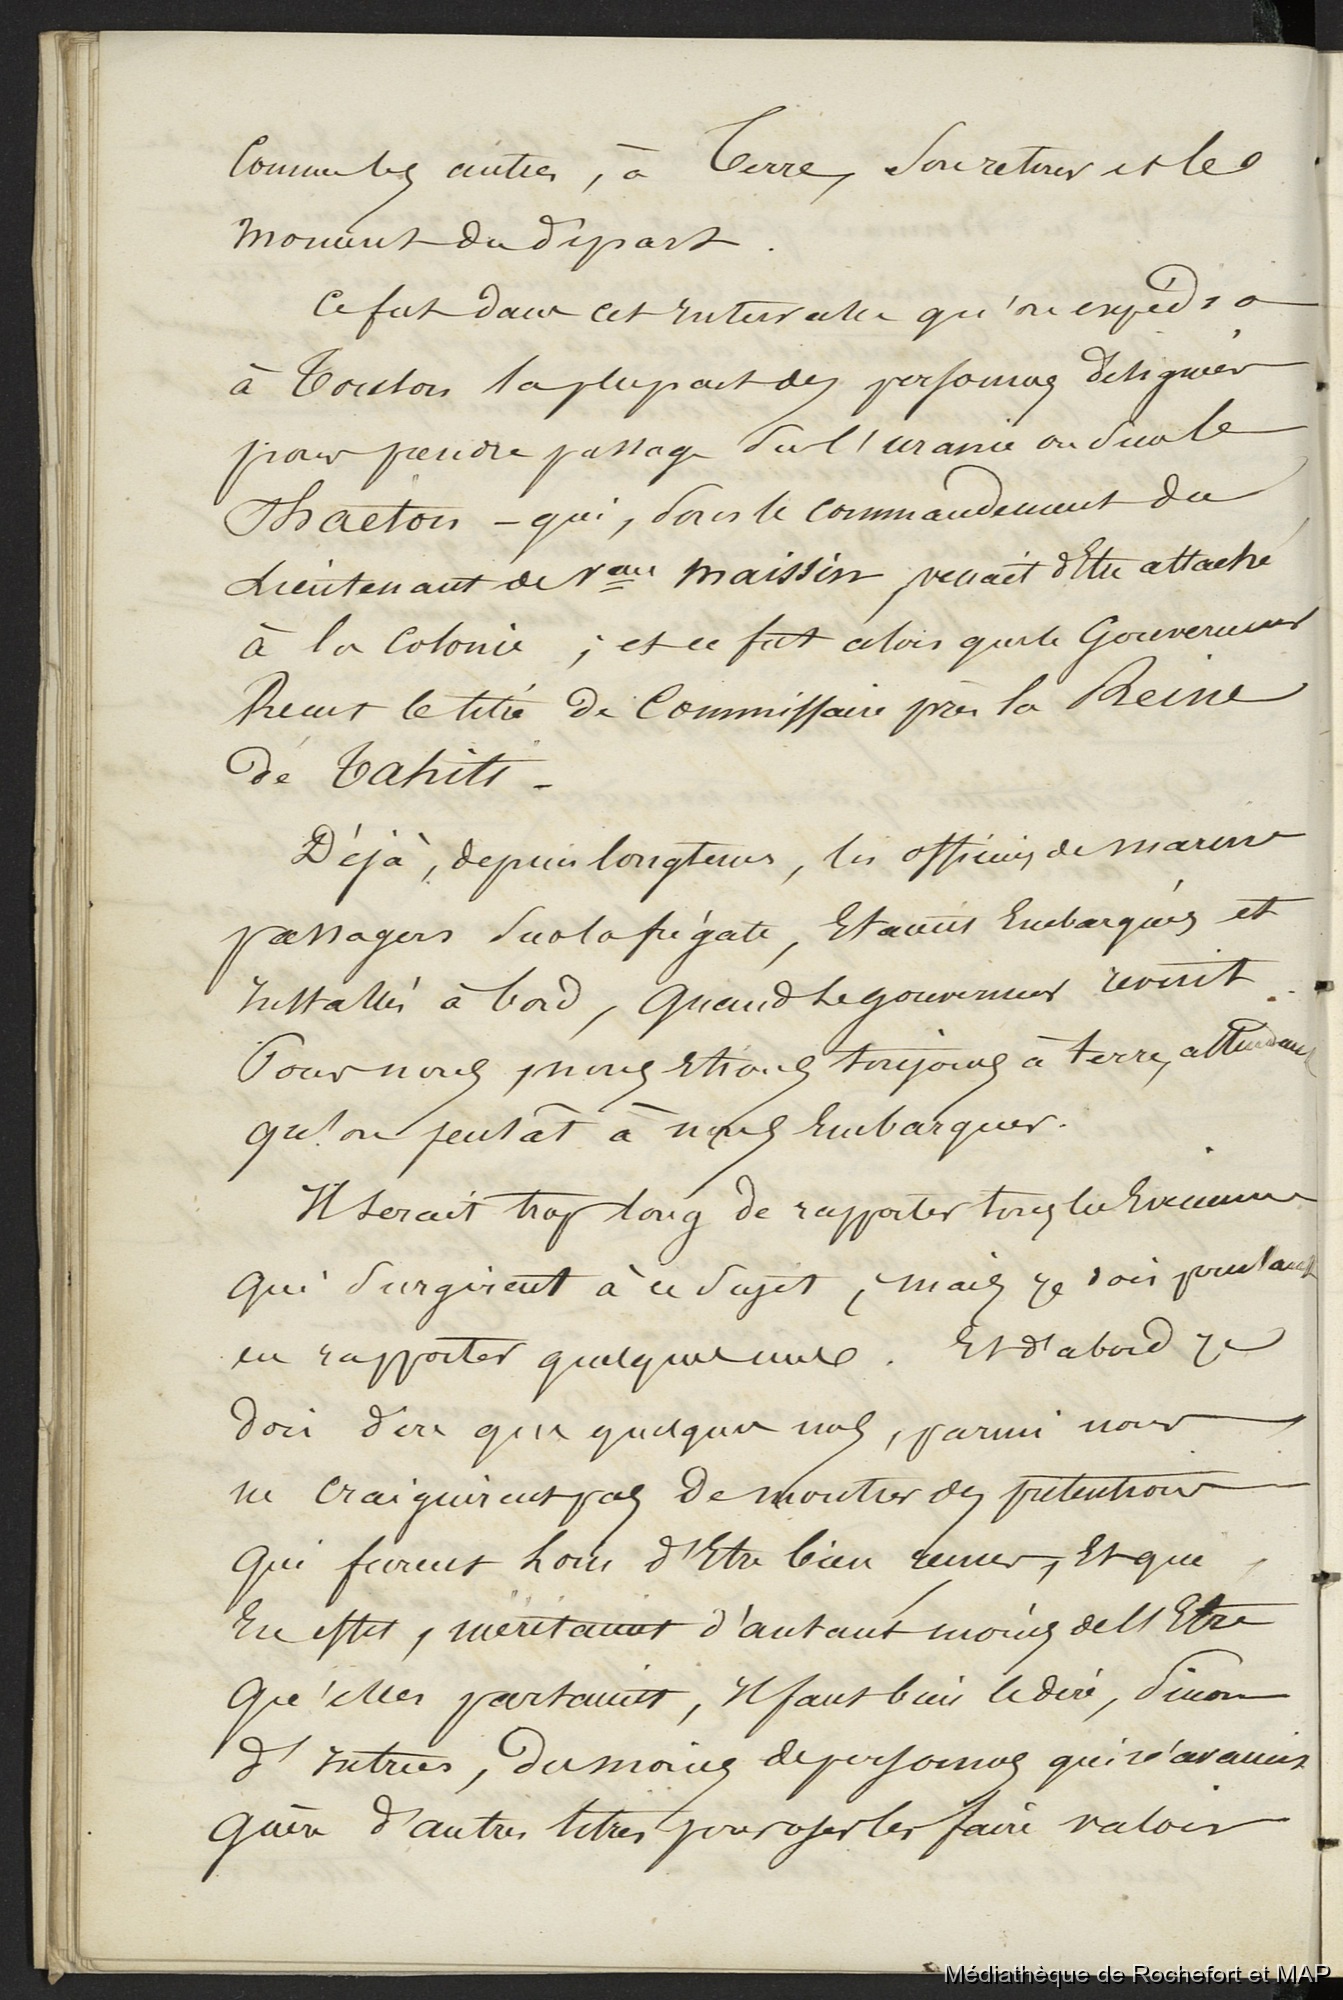 Comme les autres, à Terre, son retour et le
moment du départ.
Ce fut dans cet Intervalle qu'on expédia
à Toulon la plupart des personnes désignées
pour prendre passage sur l'uranie ou sur le
Phaeton - qui, sous le commandement du
Lieutenant de Veau Maissin, venait d'Etre attaché
à la Colonie ; et ce fut alors que le Gouverneur
Reçut le titre de Commissaire près la Reine
de Tahiti -
Déjà, depuis longtems, les officiers de marine
passagers sur la frégate, Etaient Embarqués et
Installés à bord, quand le gouverneur revint.
Pour nous, nous Etions toujours à terre, attendant
qu'on pensât à nous Embarquer.
Il serait trop long de rapporter tous les
qui surgirent à ce sujet, mais je dois pourtant
en rapporter quelques uns. Et d'abord je
dois dire que quelques uns, parmi nous
ne craignirent pas de montrer des prétentions
qui furent loin d'Etre bien venues, Et que
En effet, méritaient d'autant moins de l'Etre
qu'elles partaient, Il faut bien le dire, sinon
d'Intrus, du moins de personnes qui n'avaient
guère d'autres titres pour oser les faire valoir
Médiathèque de Rochefort et MAP